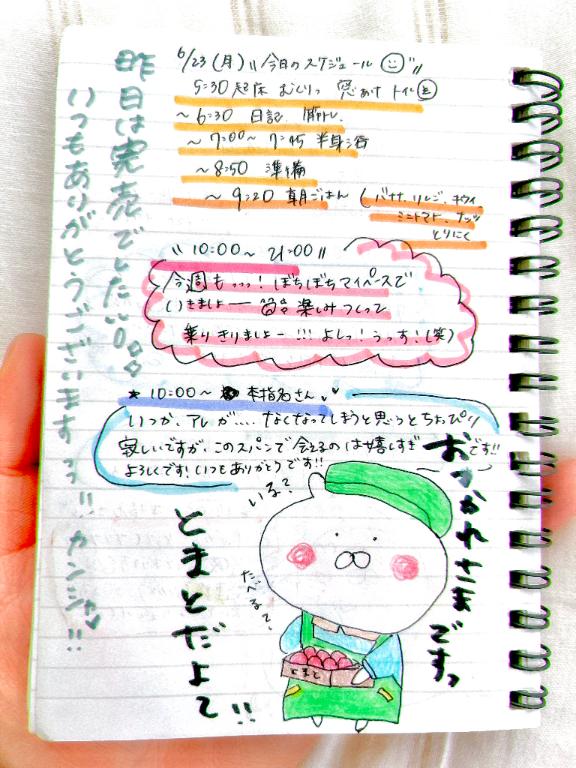 6/23(月)〃今日のスケジュール〃
5:30 起床 おしりっ 窓あけ トイレ
~6:30 日記 筋トレ
~7:00~7:45 半身浴
~8:50 準備
~9:20 朝ごはん (バナナ、リンゴ、キウイ、
ミニトマト、ナッツ
とりにく
〃10:00~21:00〃
今週もっっっ!ぼちぼちマイペースで
いきましょー 皆 楽しみつくって
乗りきりましょー!!!よしっ!うっす!(笑)
* 10:00~ 本指名さん
いつか、アレが....なくなってしまうと思うとちょっぴり
寂しいですが、このスパンで会えるのは嬉しすぎです!!
よろしくです!いつもありがとうです!!
昨日は完売でした
いつもありがとうございますっ!!カンシャ♥!!
おつかれさまですっ
いる?
たべる?
とまと
とまとだよて!!